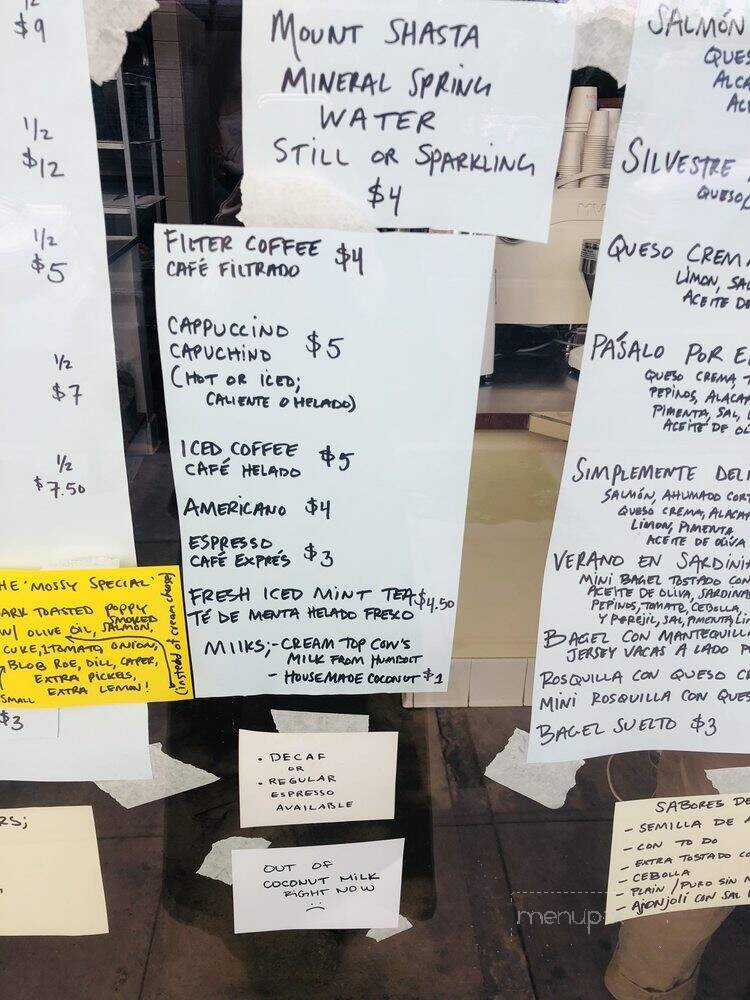 $9
1/2
$12
1/2
$5
1/2
$7
1/2
$7.50
'MOSSY SPECIAL'
TOASTED POPPY
SMOKED
W/ OLIVE OIL, SALMON,
CUKE, TOMATO, ONION,
BLOB ROE, DILL, CAPER,
EXTRA PICKELS,
EXTRA LEMON!
SMALL
(instead of cream cheese)
$3
MOUNT SHASTA
MINERAL SPRING
WATER
STILL OR SPARKLING
$4
FILTER COFFEE $4
CAFÉ FILTRADO
CAPPUCCINO
CAPUCHINO $5
(HOT OR ICED;
CALIENTE O HELADO)
ICED COFFEE $5
CAFÉ HELADO
AMERICANO $4
ESPRESSO $3
CAFÉ EXPRÉS
FRESH ICED MINT TEA $4.50
TÉ DE MENTA HELADO FRESCO
MILKS; - CREAM TOP COW'S
MILK FROM HUMBOLT
- HOUSEMADE COCONUT $1
• DECAF
OR
• REGULAR
ESPRESSO
AVAILABLE
OUT OF
COCONUT MILK
RIGHT NOW
SALMÓN
SILVESTRE
QUESO
QUESO CREMA
LIMON,
ACEITE DE
PÁSALO POR
QUESO CREMA
PEPINOS,
PIMENTA, SAL,
ACEITE DE
SIMPLEMENTE
SALMÓN, AHUMADO
QUESO CREMA,
LIMON, PIMENTA
ACEITE DE OLIVA
VERANO EN
MINI BAGEL TOSTADO CON
ACEITE DE OLIVA,
PEPINOS, TOMATO, CEBOLLA,
Y PEREJIL, SAL, PIMENTA,
BAGEL CON
JERSEY VACAS A LADO
ROSQUILLA CON QUESO
MINI ROSQUILLA CON
BAGEL SUELTO $3
SABORES
- SEMILLA DE
- CON TO DO
- EXTRA TOSTADO
- CEBOLLA
- PLAIN / PURO SIN
- AJONJOLÍ CON SAL